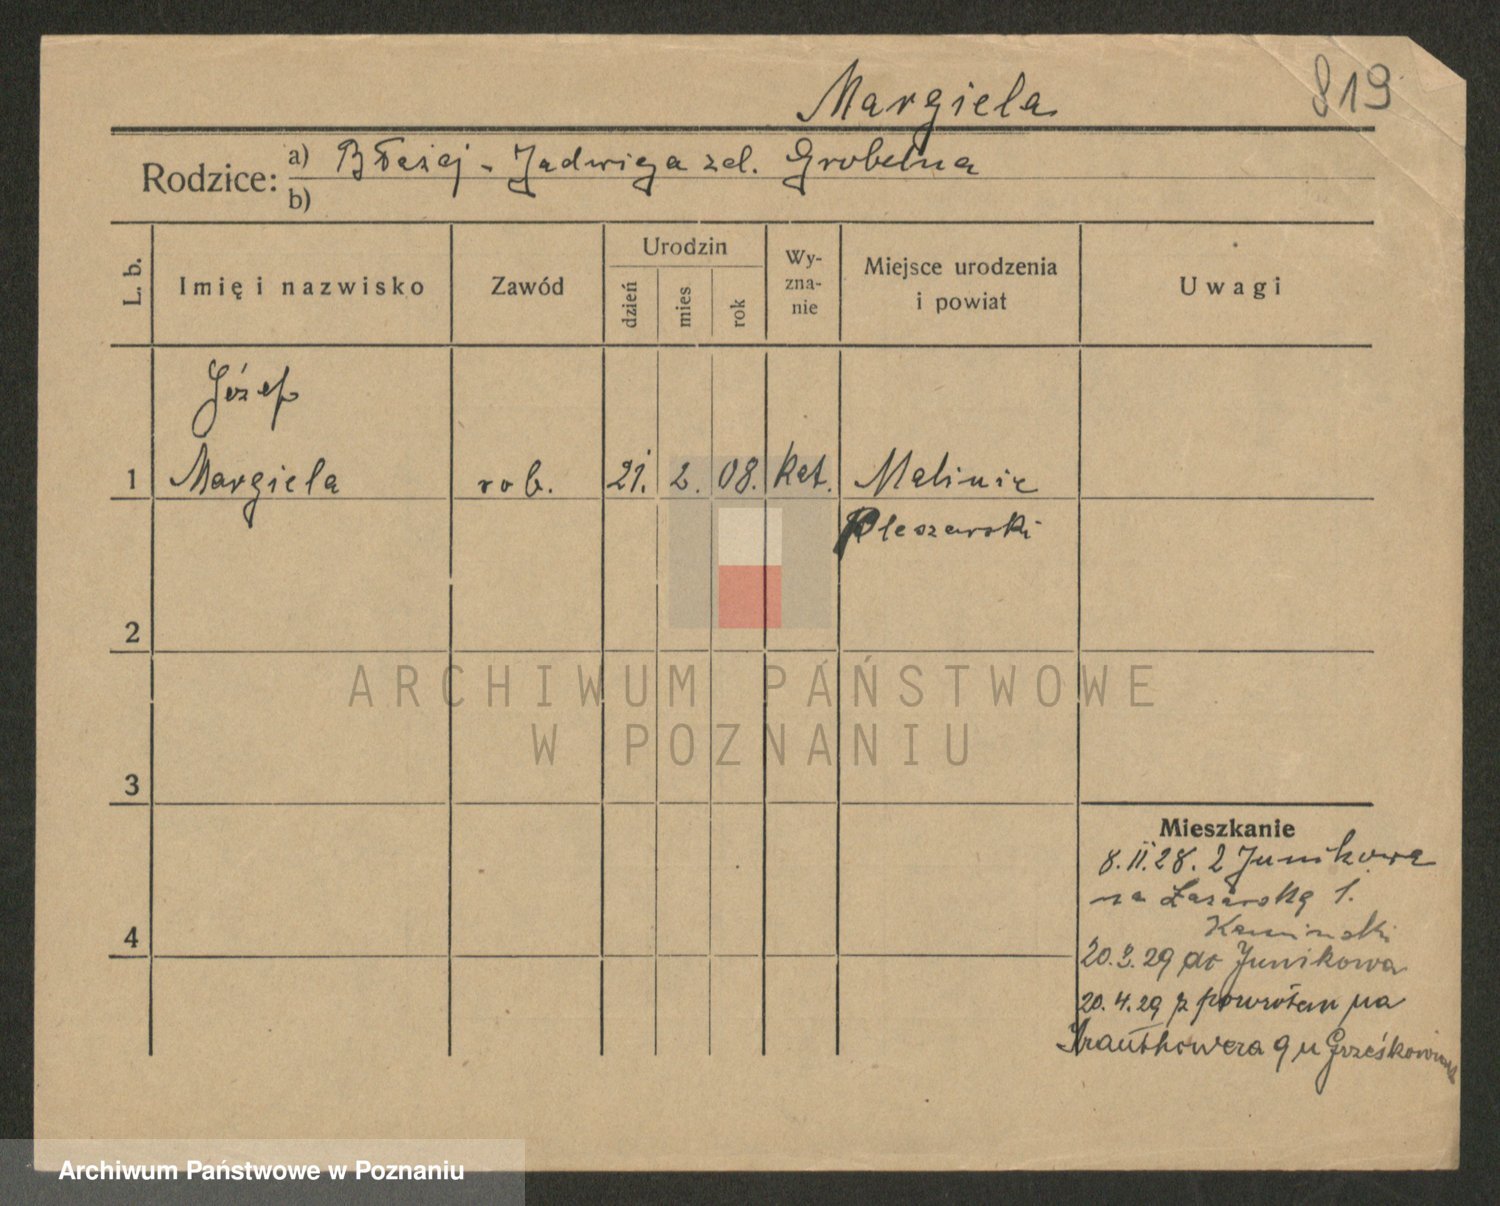 Margiela
819
Rodzice: a) Błażej - Jadwiga zd. Grobelna
b)
L. b. Imię i nazwisko Zawód Urodzin dzień mies rok Wy-zna-nie Miejsce urodzenia i powiat Uwagi
Józef
1 Margiela rob. 21. 2. 08. kat. Malinie
Pleszewski
2
ARCHIWUM PAŃSTWOWE
W POZNANIU
3
Mieszkanie
8.II.28. z Junikowa
na Łazarską 1.
Kaminski
4
20.3.29 do Junikowa
20.4.29 z powrotem na
9 u
Archiwum Państwowe w Poznaniu